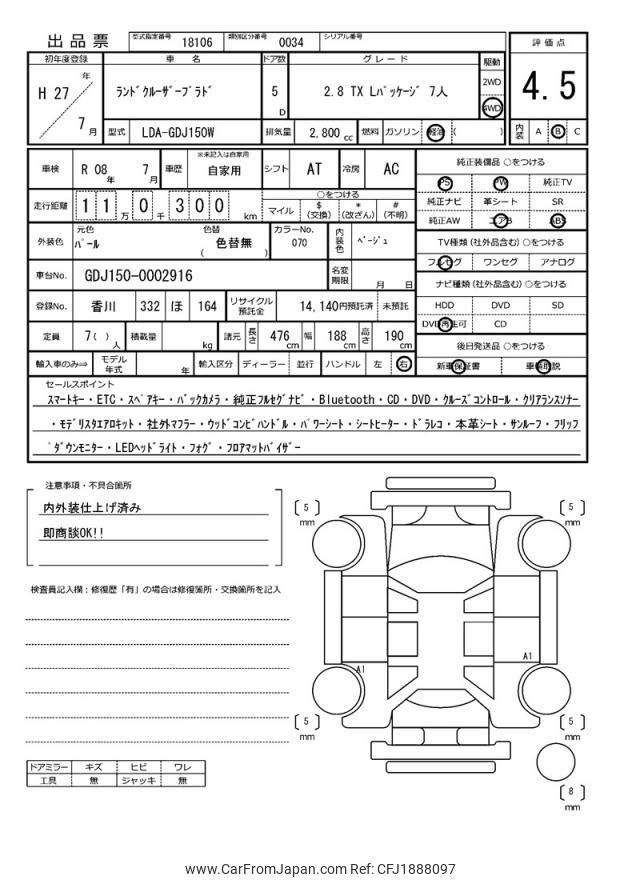 出品票
型式指定番号 18106 類別区分番号 0034 シリアル番号
初年度登録 車名 ドア数 グレード 駆動 評価点
H 27 年 7 月
ランドクルーザープラド 5 D 2.8 TX Lパッケージ 7人
2WD
4WD
4.5
型式 LDA-GDJ150W 排気量 2,800 cc 燃料 ガソリン 軽油 ( ) 内装 A B C
車検 R 08 年 7 月 車歴 ※未記入は自家用 自家用 シフト AT 冷房 AC
走行距離 1 1 万 0 千 3 0 0 km
○をつける
マイル $ (交換) * (改ざん) # (不明)
外装色 元色 パール 色替 ( 色替無 ) カラーNo. 070 内装色 ベージュ
車台No. GDJ150-0002916 名変期限 月 日
登録No. 香川 332 ほ 164 リサイクル預託金 14,140円預託済 未預託
定員 7( ) 人 積載量 kg 諸元 長さ 476 cm 幅 188 cm 高さ 190 cm
輸入車のみ⇒ モデル年式 年 輸入区分 ディーラー 並行 ハンドル 左 右
純正装備品 ○をつける
PS PW 純正TV
純正ナビ 革シート SR
純正AW エアB ABS
TV種類(社外品含む) ○をつける
フルセグ ワンセグ アナログ
ナビ種類(社外品含む) ○をつける
HDD DVD SD
DVD再生可 CD
後日発送品 ○をつける
新車保証書 車輌取説
セールスポイント
スマートキー・ETC・スペアキー・バックカメラ・純正フルセグナビ・Bluetooth・CD・DVD・クルーズコントロール・クリアランスソナー
・モデリスタエアロキット・社外マフラー・ウッドコンビハンドル・パワーシート・シートヒーター・ドラレコ・本革シート・サンルーフ・フリップ
ダウンモニター・LEDヘッドライト・フォグ・フロアマットバイザー
注意事項・不具合箇所
内外装仕上げ済み
即商談OK!!
検査員記入欄:修復歴「有」の場合は修復箇所・交換箇所を記入
5 mm
5 mm
A1
A1
5 mm
5 mm
8 mm
ドアミラー キズ ヒビ ワレ
工具 無 ジャッキ 無
www.CarFromJapan.com Ref: CFJ1888097